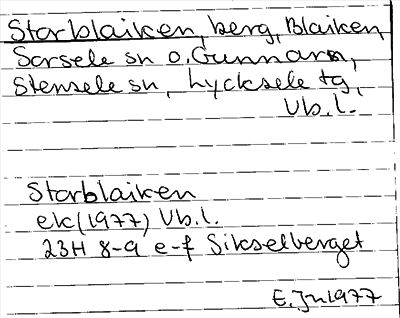 Storblaiken, berg, Blaiken,
Sorsele sn o. Gunnarn,
Stensele sn, Lycksele tg,
Vb.l.
Storblaiken
ek (1977) Vb.l.
23H 8-9 e-f Sikselberget
E. Jn 1977